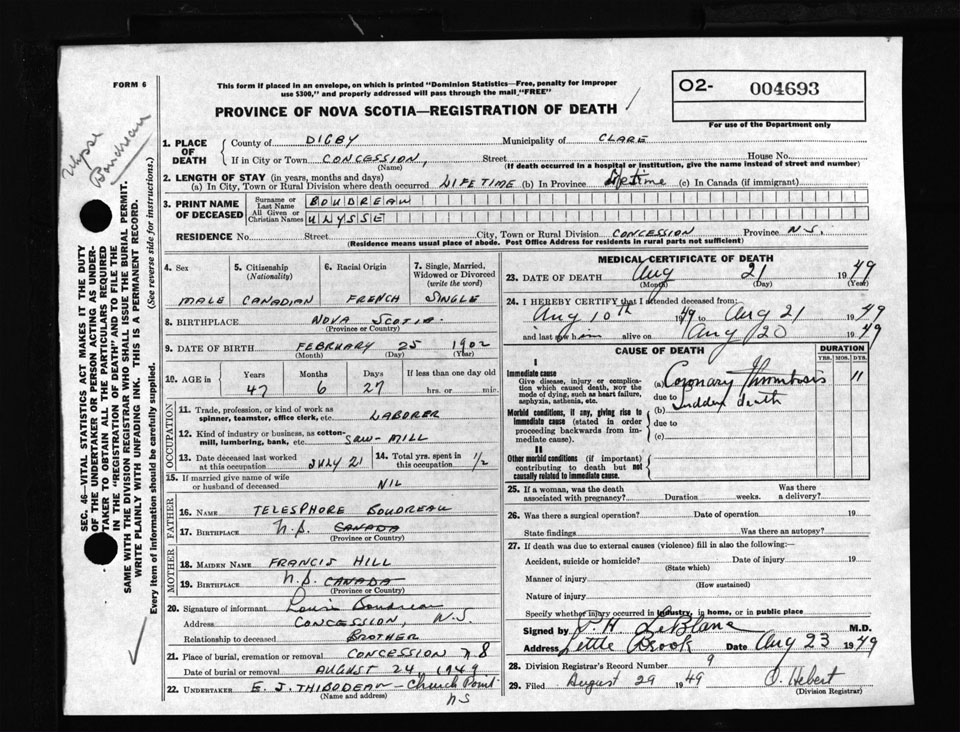 FORM 6
This form if placed in an envelope, on which is printed "Dominion Statistics—Free, penalty for improper
use $300," and properly addressed will pass through the mail "FREE"
PROVINCE OF NOVA SCOTIA—REGISTRATION OF DEATH
O2- 004693
For use of the Department only
Ulysse
Boudreau
SEC. 46—VITAL STATISTICS ACT MAKES IT THE DUTY
OF THE UNDERTAKER OR PERSON ACTING AS UNDER-
TAKER TO OBTAIN ALL THE PARTICULARS REQUIRED
IN THE "REGISTRATION OF DEATH" AND TO FILE THE
SAME WITH THE DIVISION REGISTRAR WHO SHALL ISSUE THE BURIAL PERMIT.
WRITE PLAINLY WITH UNFADING INK. THIS IS A PERMANENT RECORD.
Every item of information should be carefully supplied. (See reverse side for instructions.)
1. PLACE OF DEATH
County of DIGBY Municipality of CLARE
If in City or Town CONCESSION, Street House No.
(Name) (If death occurred in a hospital or institution, give the name instead of street and number)
2. LENGTH OF STAY (in years, months and days)
(a) In City, Town or Rural Division where death occurred LIFETIME (b) In Province lifetime (c) In Canada (if immigrant)
3. PRINT NAME OF DECEASED
Surname or Last Name BOUDREAU
All Given or Christian Names ULYSSE
RESIDENCE No. Street City, Town or Rural Division CONCESSION Province N.S.
(Residence means usual place of abode. Post Office Address for residents in rural parts not sufficient)
4. Sex 5. Citizenship (Nationality) 6. Racial Origin 7. Single, Married, Widowed or Divorced (write the word)
MALE CANADIAN FRENCH SINGLE
8. BIRTHPLACE NOVA SCOTIA
(Province or Country)
9. DATE OF BIRTH FEBRUARY 25 1902
(Month) (Day) (Year)
10. AGE in Years Months Days If less than one day old
47 6 27 hrs. or min.
OCCUPATION
11. Trade, profession, or kind of work as spinner, teamster, office clerk, etc. LABORER
12. Kind of industry or business, as cotton-mill, lumbering, bank, etc. SAW-MILL
13. Date deceased last worked at this occupation JULY 21 14. Total yrs. spent in this occupation 1/2
15. If married give name of wife or husband of deceased NIL
FATHER
16. NAME TELESPHORE BOUDREAU
17. BIRTHPLACE N.S. CANADA
(Province or Country)
MOTHER
18. MAIDEN NAME FRANCIS HILL
19. BIRTHPLACE N.S. CANADA
(Province or Country)
20. Signature of informant Louis Boudreau
Address CONCESSION, N.S.
Relationship to deceased BROTHER
21. Place of burial, cremation or removal CONCESSION
Date of burial or removal AUGUST 24, 1949
22. UNDERTAKER E. J. THIBODEAU - Church Point
(Name and address) NS
MEDICAL CERTIFICATE OF DEATH
23. DATE OF DEATH Aug 21 1949
(Month) (Day) (Year)
24. I HEREBY CERTIFY that I attended deceased from:
Aug 10th 1949 to Aug 21 1949
and last saw him alive on Aug 20 1949
CAUSE OF DEATH DURATION
YRS. MOS. DYS.
I
Immediate cause
Give disease, injury or complication which caused death, NOT the mode of dying, such as heart failure, asphyxia, asthenia, etc.
(a) Coronary Thrombosis 11
due to Sudden death
Morbid conditions, if any, giving rise to immediate cause (stated in order proceeding backwards from immediate cause).
(b)
due to
(c)
II
Other morbid conditions (if important) contributing to death but not causally related to immediate cause.
25. If a woman, was the death associated with pregnancy? Duration weeks. Was there a delivery?
26. Was there a surgical operation? Date of operation 19
State findings Was there an autopsy?
27. If death was due to external causes (violence) fill in also the following:—
Accident, suicide or homicide? Date of injury 19
(State which)
Manner of injury
(How sustained)
Nature of injury
Specify whether injury occurred in industry, in home, or in public place
Signed by P. H. LeBlanc M.D.
Address Little Brook Date Aug 23 1949
28. Division Registrar's Record Number 9
29. Filed August 29 1949 O. Hebert
(Division Registrar)